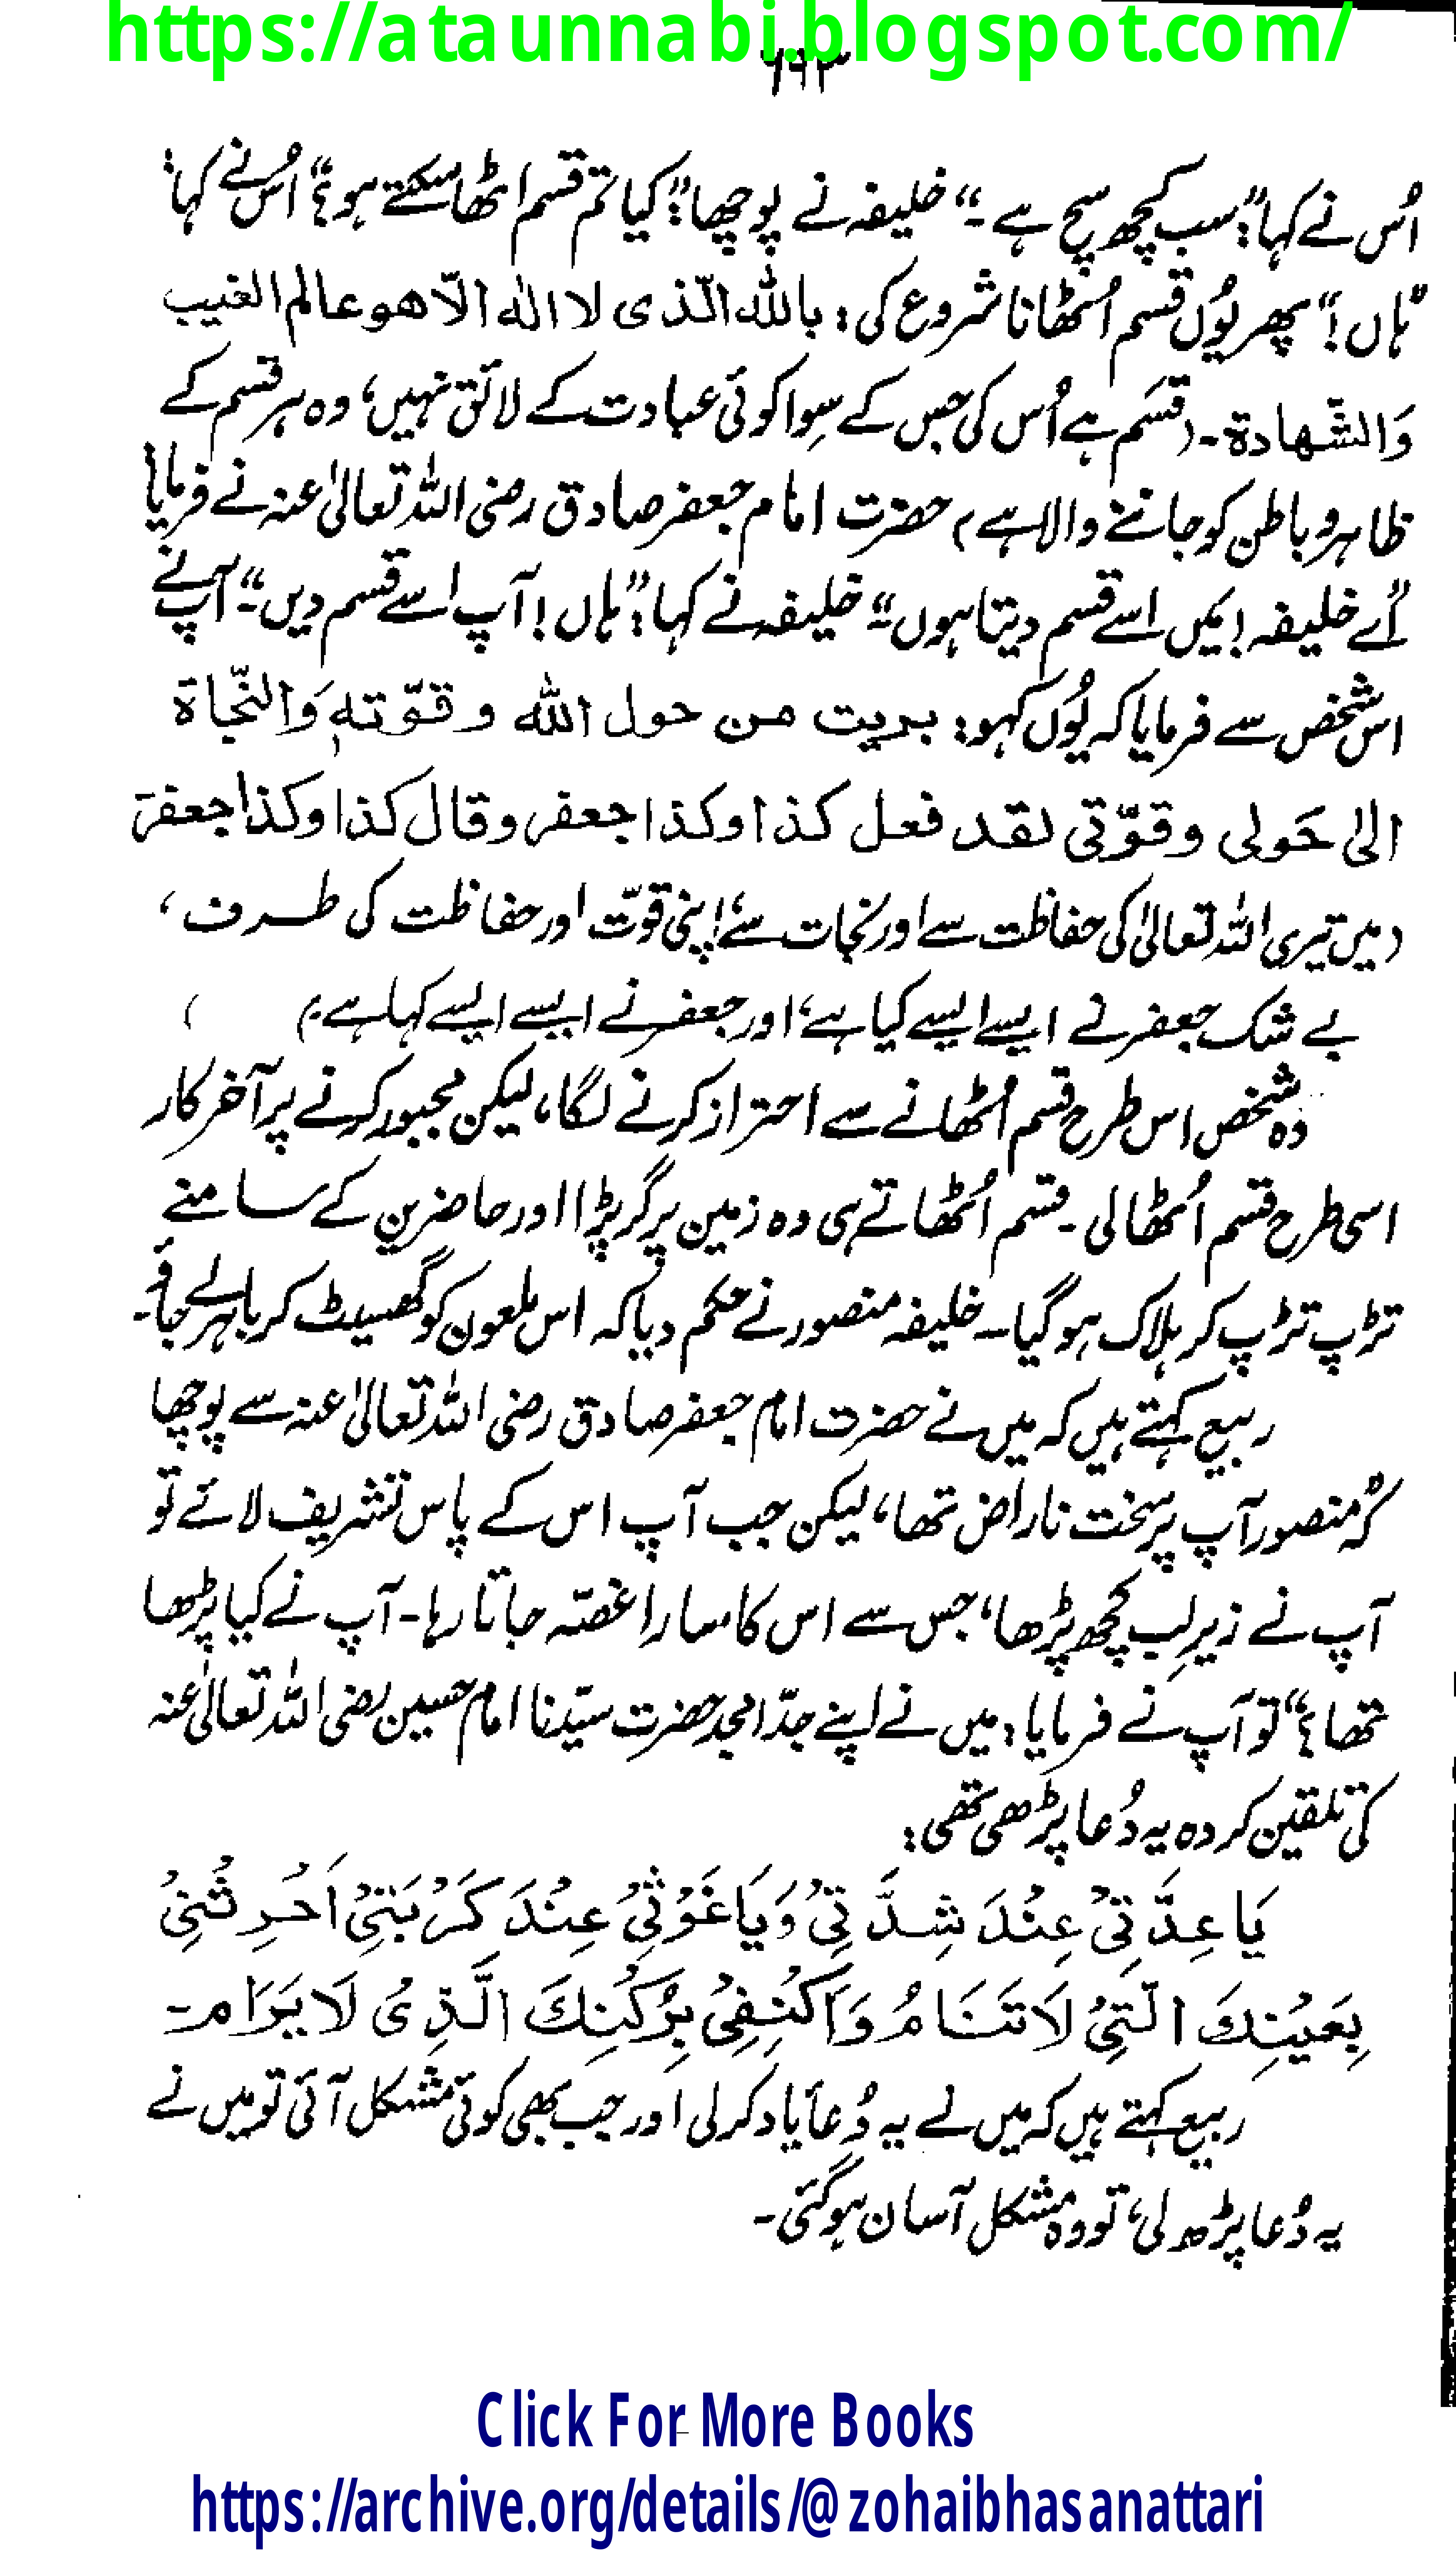 https://ataunnabi.blogspot.com/
٦٩٣
اُس نے کہا:”سب کچھ سچ ہے۔“ خلیفہ نے پوچھا:”کیا تم قسم اٹھا سکتے ہو؟“ اُس نے کہا:
”ہاں!“ پھر یُوں قسم اُٹھانا شروع کی: باللہ الّذی لا الٰہ الّا ھو عالم الغیب
وَالشّھادۃ۔ (قسَم ہے اُس کی جس کے سِوا کوئی عبادت کے لائق نہیں، وہ ہر قسم کے
ظاہر و باطن کو جاننے والا ہے) حضرت امام جعفر صادق رضی اللہ تعالیٰ عنہ نے فرمایا:
”اَے خلیفہ! مَیں اسے قسم دیتا ہوں“۔ خلیفہ نے کہا:”ہاں! آپ اسے قسم دیں“۔ آپ نے
اس شخص سے فرمایا کہ یُوں کہو: بریت من حول اللہ و قوّتہٖ وَالنّجاۃ
الیٰ حَولی وقوّتی لقد فعل کذا وکذا جعفر وقال کذا وکذا جعفر
(میں تیری اللہ تعالیٰ کی حفاظت سے اور نجات سے، اپنی قوّت اور حفاظت کی طرف،
بے شک جعفر نے ایسے ایسے کیا ہے، اور جعفر نے ایسے ایسے کہا ہے۔) )
وہ شخص اس طرح قسم اُٹھانے سے احتراز کرنے لگا، لیکن مجبور کرنے پر آخر کار
اسی طرح قسم اُٹھا لی۔ قسم اُٹھاتے ہی وہ زمین پر گر پڑا اور حاضرین کے سامنے
تڑپ تڑپ کر ہلاک ہو گیا۔ خلیفہ منصور نے حکم دیا کہ اس ملعون کو گھسیٹ کر باہر لے جاؤ۔
ربیع کہتے ہیں کہ میں نے حضرت امام جعفر صادق رضی اللہ تعالیٰ عنہ سے پوچھا
کہ”منصور آپ پر سخت ناراض تھا، لیکن جب آپ اس کے پاس تشریف لائے تو
آپ نے زیرِ لب کچھ پڑھا، جس سے اس کا سارا غصّہ جاتا رہا۔ آپ نے کیا پڑھا
تھا؟“ تو آپ نے فرمایا: میں نے اپنے جدّ امجد حضرت سیّدنا امام حسین رضی اللہ تعالیٰ عنہ
کی تلقین کردہ یہ دُعا پڑھی تھی:
یَا عِدَّتِیْ عِنْدَ شِدَّتِیْ وَیَا غَوْثِیْ عِنْدَ کَرْبَتِیْ اَحْرِثْنِیْ
بِعَیْنِكَ الَّتِیْ لَا تَنَامُ وَاَکْنِفِیْ بِرُکْنِكَ الَّذِیْ لَا یَرَام۔
ربیع کہتے ہیں کہ میں نے یہ دُعا یاد کر لی اور جب بھی کوئی مشکل آئی تو میں نے
یہ دُعا پڑھ لی، تو وہ مشکل آسان ہو گئی۔
Click For More Books
https://archive.org/details/@zohaibhasanattari